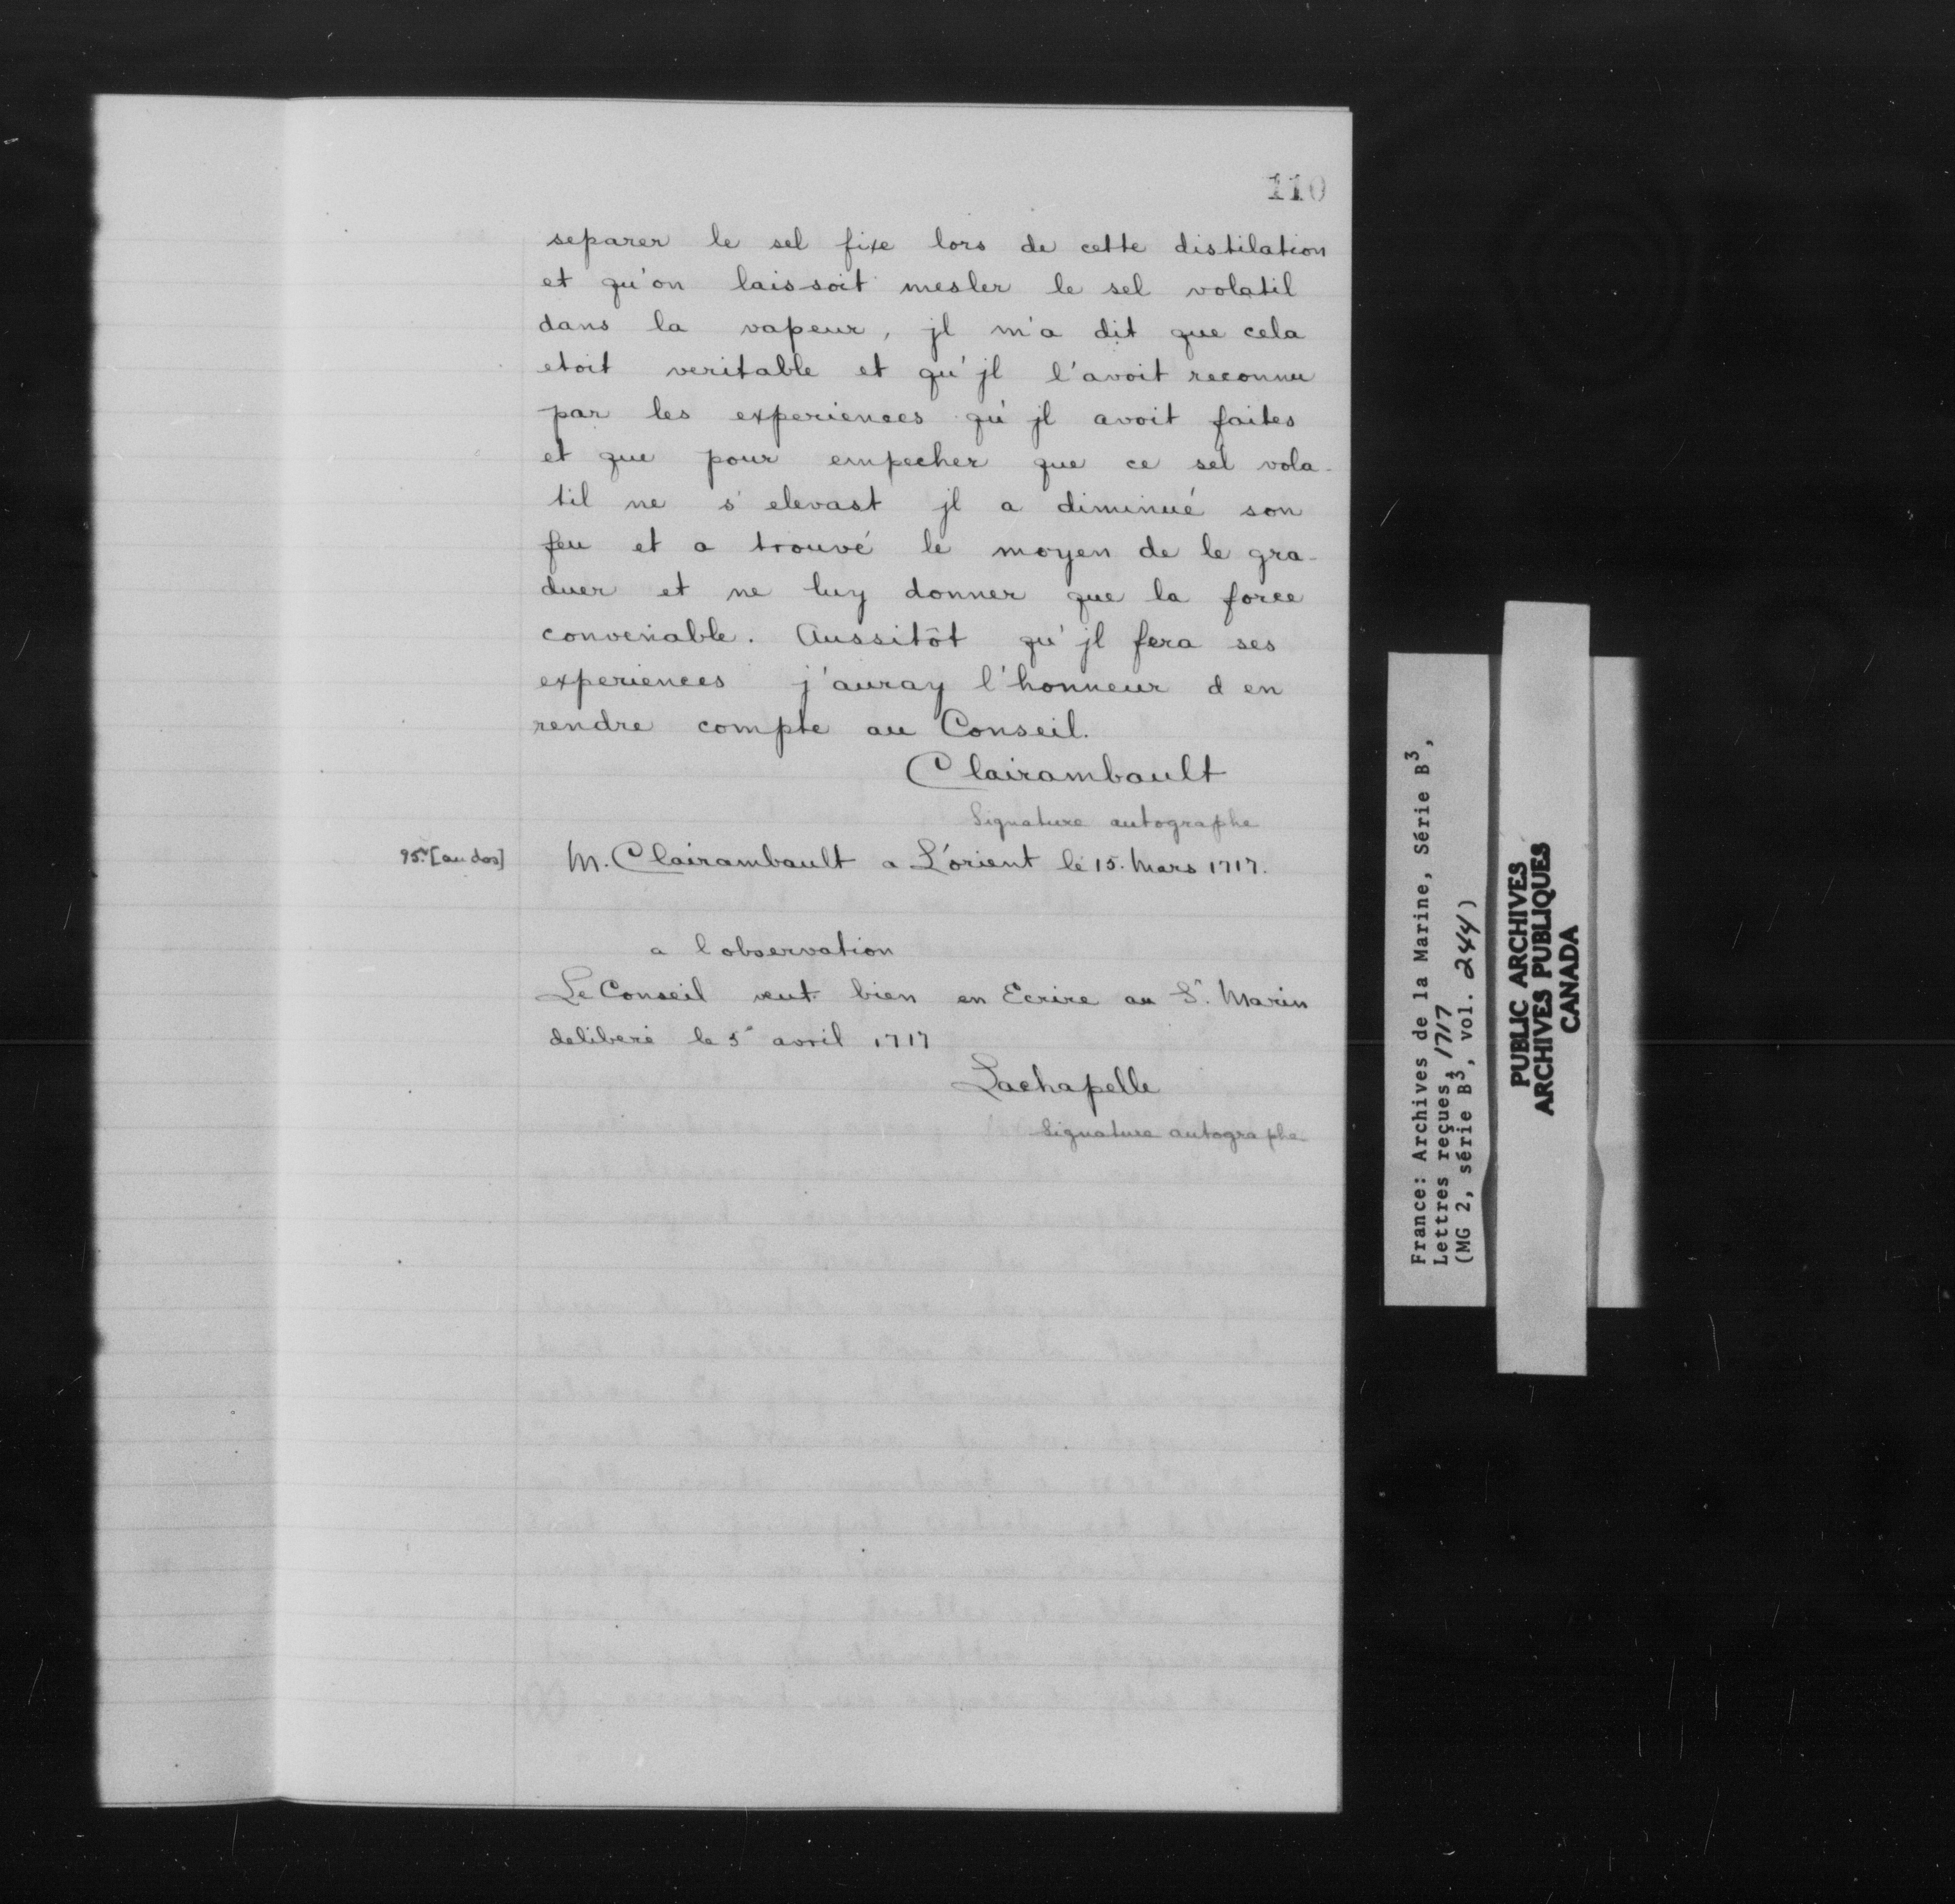 110
separer le sel fixe lors de cette distilation
et qu'on laissoit mesler le sel volatil
dans la vapeur, jl m'a dit que cela
etoit veritable et qu'jl l'avoit reconnu
par les experiences qu'jl avoit faites
et que pour empecher que ce sel vola-
til ne s'elevast jl a diminué son
feu et a trouvé le moyen de le gra-
duer et ne luy donner que la force
convenable. Aussitôt qu'jl fera ses
experiences j'auray l'honneur d'en
rendre compte au Conseil.
Clairambault
Signature autographe
95v [au dos] M. Clairambault a L'orient le 15. Mars 1717.
a l'observation
Le Conseil veut bien en Ecrire au Sr. Marin
deliberé le 5e avril 1717
Lachapelle
Signature autographe
France: Archives de la Marine, Série B3,
Lettres reçues, 1717
(MG 2, série B3, vol. 244)
PUBLIC ARCHIVES
ARCHIVES PUBLIQUES
CANADA